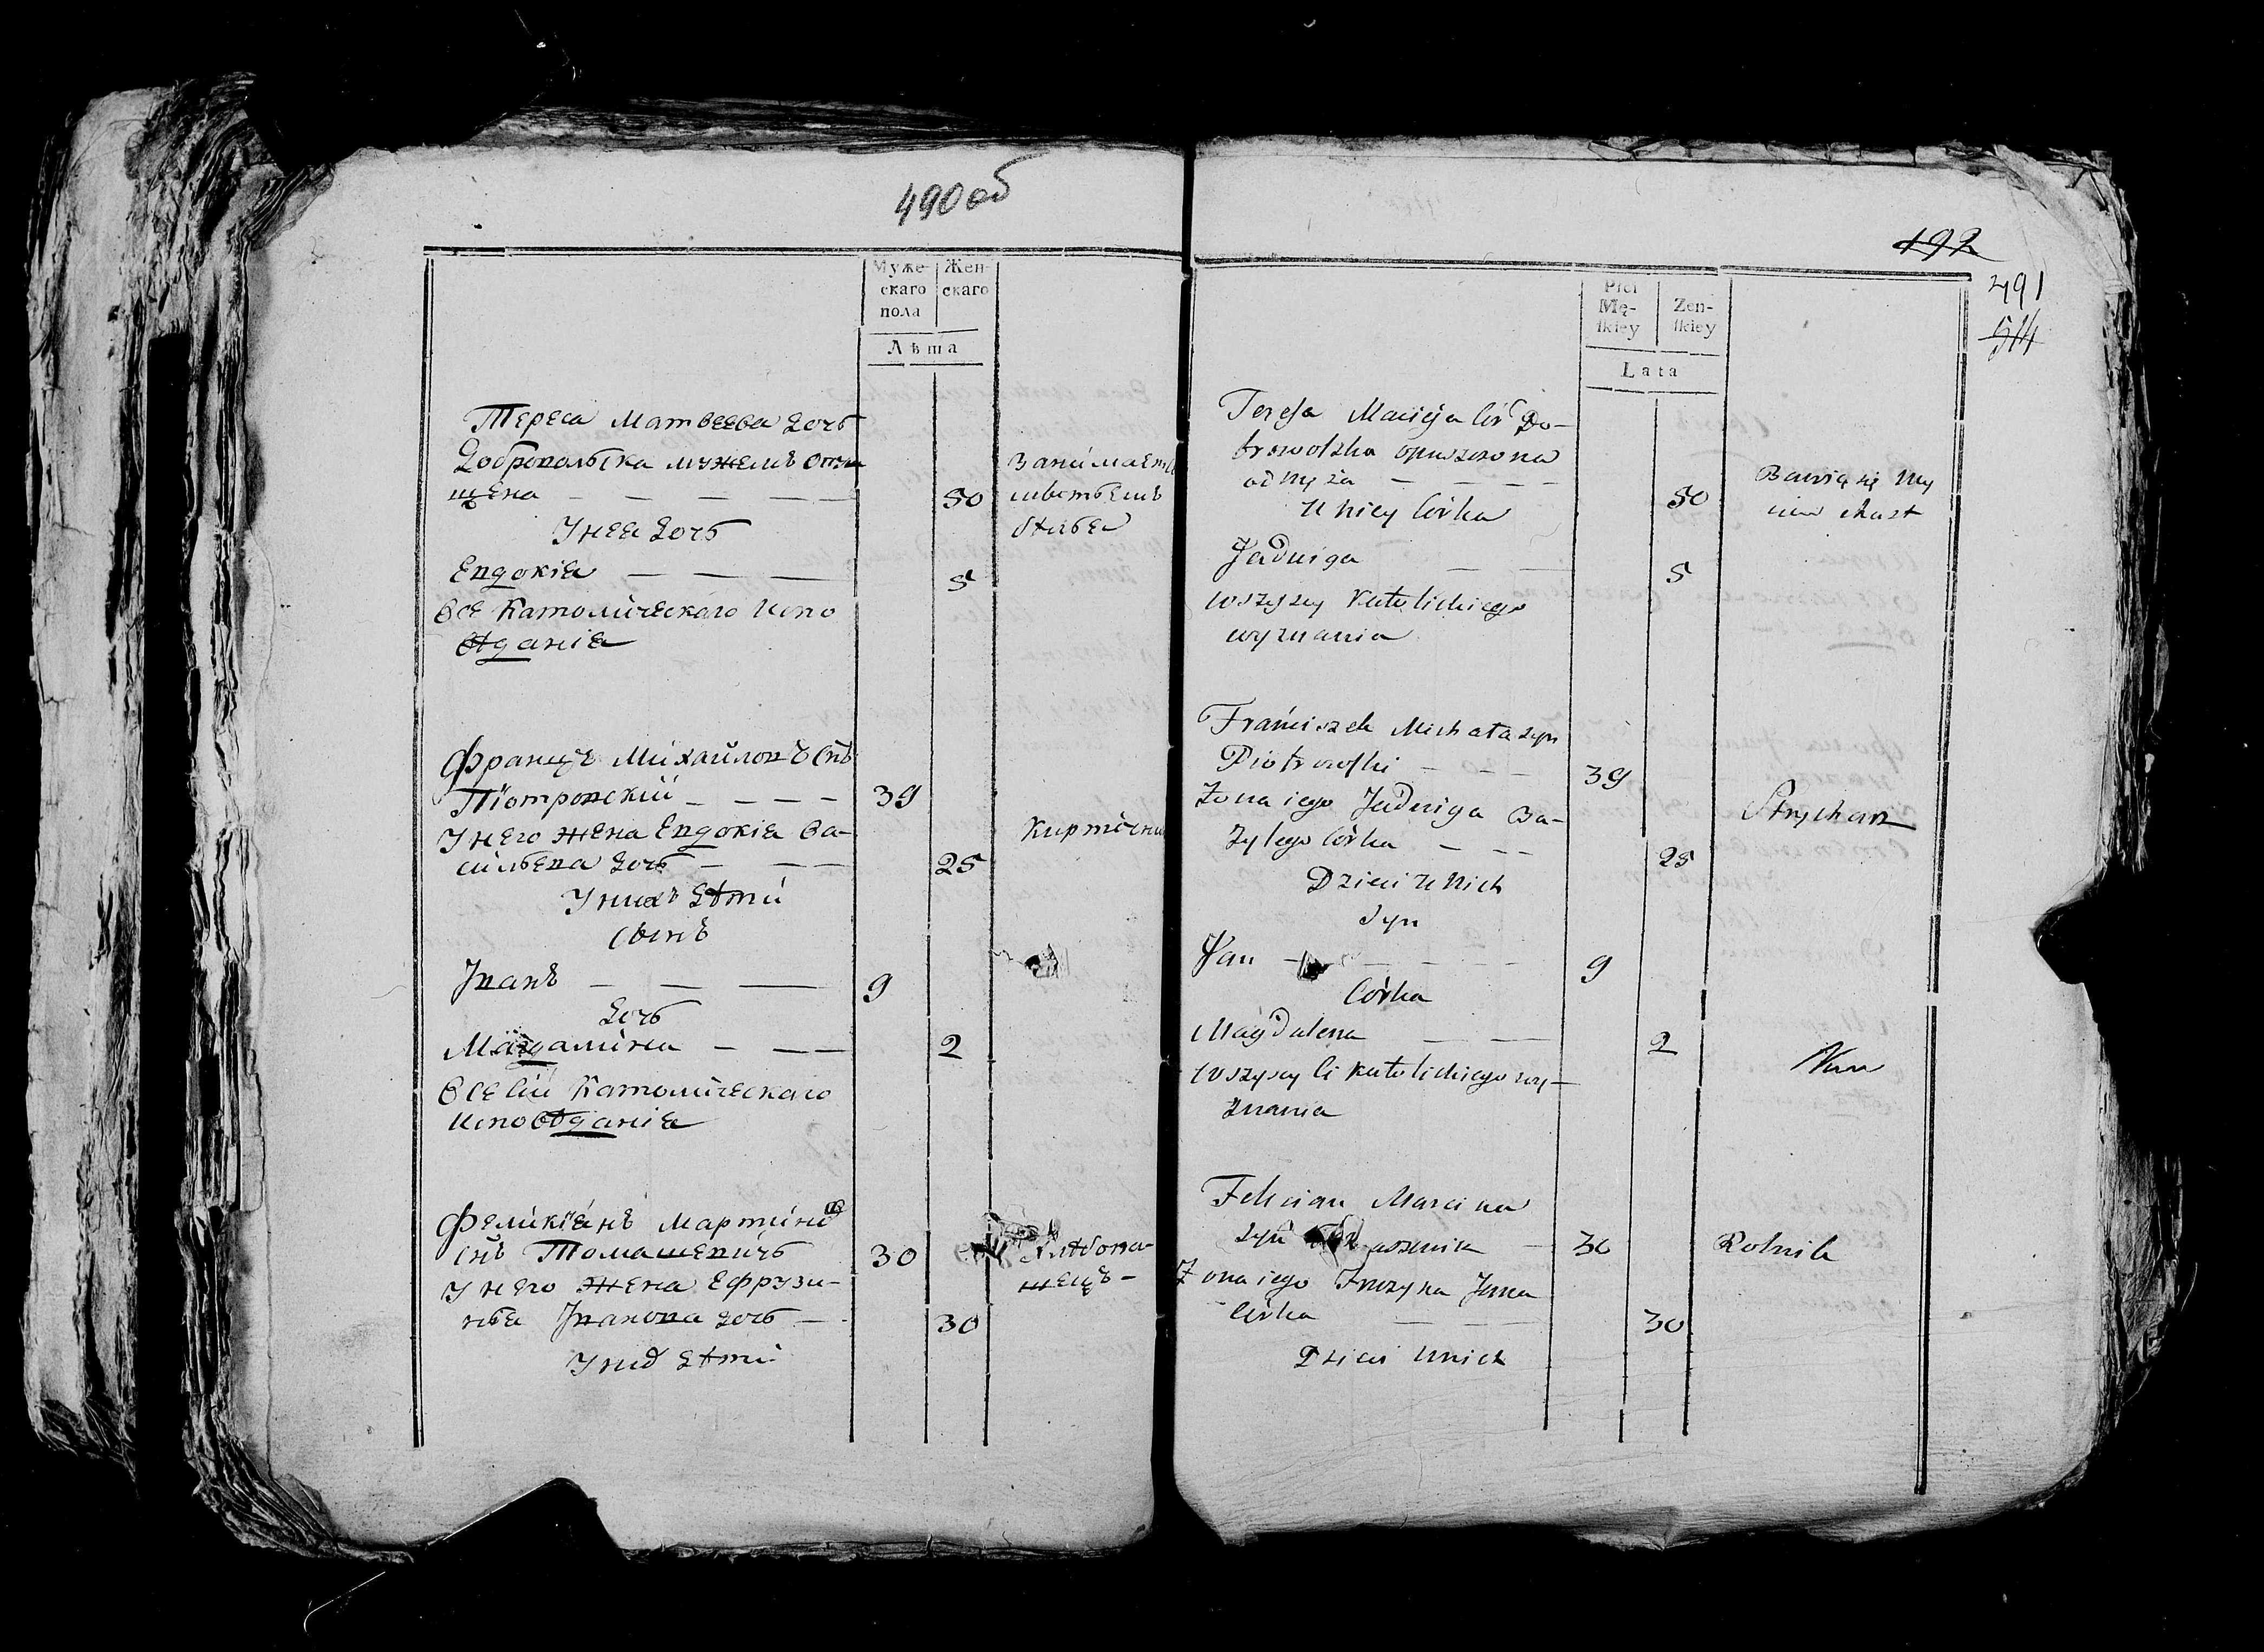 490 об
Муже-
скаго
пола
Жен-
скаго
Лѣта
Тереса Матвеева дочь
Добровольска мужемъ отпу
щена — — — — — 50
У нее дочь
Евдокіа — — — 5
Все Католическаго испо
вѣданіа
Занимаетса
бѣлья
Францъ Михайловъ Снъ
Піотровскій — — — — 39
У него жена Евдокіа Ва-
сильева дочь — — — 25
Кирпични
У нихъ дѣти
Сынъ
Иванъ — — — 9
дочь
Магдалина — — — 2
Все сіи Католическаго
исповѣданіа
Феликіанъ Мартинов
Снъ Томашевичъ 30
У него жена Ефрузи-
нья Иванова дочь — 30
У них дѣти
Хлѣбопа-
шецъ –
192
491
514
Płci
Mę-
ſkiey
Zen-
ſkiey
Lata
Tereſa Macieja Cór Do-
browolſka opuszczona
od męża — — — — 50
U niey Córka
Jadwiga — — 5
wszyscy Katolickiego
wyznania
Bawią się my
ciem chust
Franciszek Michała syn
Piotrowſki — — — 39
Zona iego Jadwiga Ba-
zylego Córka — — — 25
Strycharz
Dzieci u Nich
Syn
Jan — — — — 9
Córka
Magdalena — — 2
wszyscy Ci katolickiego wy-
znania
Felician Marcina
syn — 30
Rolnik
Zona iego Fruzyna Jana
Córka — — — 30
Dzieci unich